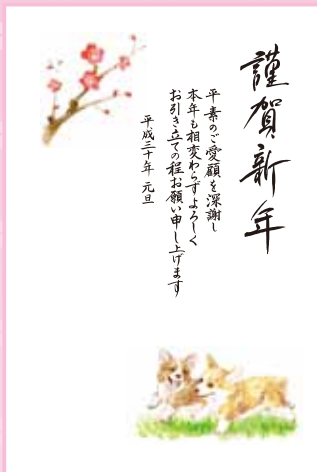 謹賀新年
平素のご愛顧を深謝し
本年も相変わらずよろしく
お引き立ての程お願い申し上げます
平成三十年 元旦